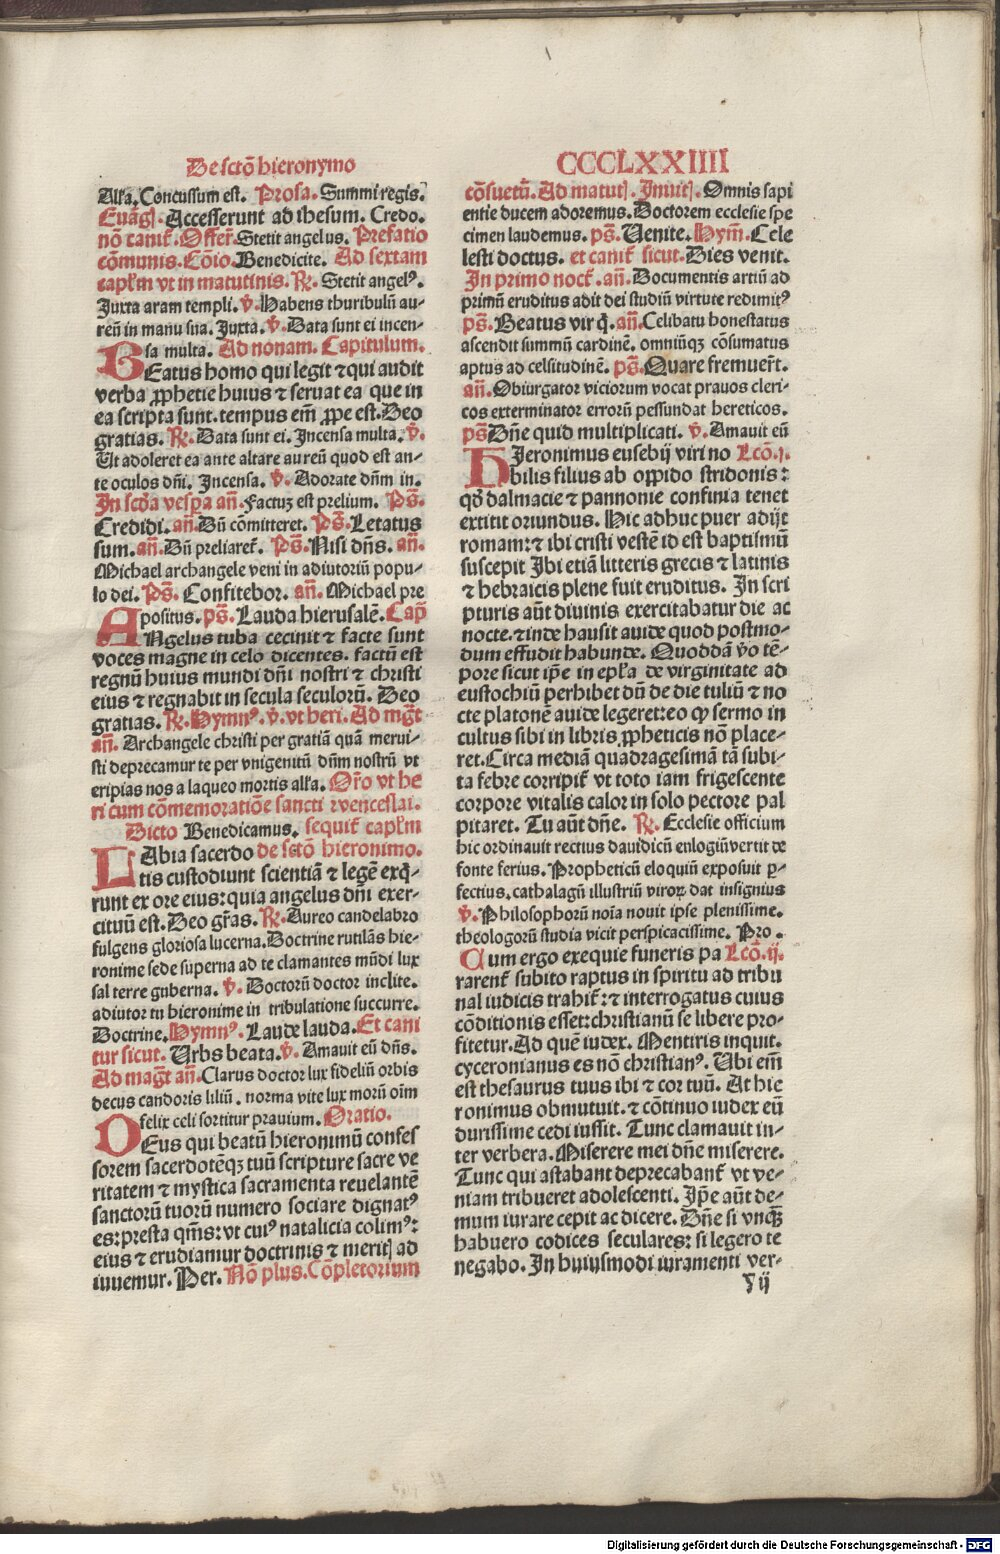 De sctō hieronymo
Alľa. Concussum est. Prosa. Summi regis.
Euāgͥ. Accesserunt ad ihesum. Credo.
nō canit᷑. Offer̄. Stetit angelus. Prefatio
cōmunis. Cōio. Benedicite. Ad sextam
capľm vt in matutinis. R̄. Stetit angelꝰ.
Juxta aram templi. v̄. Habens thuribulū au-
reū in manu sua. Juxta. v̄. Data sunt ei incen-
sa multa. Ad nonam. Capitulum.
BEatus homo qui legit ⁊ qui audit
verba ꝓphetie huius ⁊ seruat ea que in
ea scripta sunt. tempus em̄ ꝓpe est. Deo
gratias. R̄. Data sunt ei. Incensa multa. v̄.
Ut adoleret ea ante altare aureū quod est an-
te oculos dn̄i. Incensa. v̄. Adorate dn̄m in.
In scďa vespa an̄. Factuꝫ est prelium. Ps̄.
Credidi. an̄. Dū cōmitteret. Ps̄. Letatus
sum. an̄. Dū preliaret᷑. Ps̄. Nisi dn̄s. an̄.
Michael archangele veni in adiutoriū popu-
lo dei. Ps̄. Confitebor. an̄. Michael pre
positus. ps̄. Lauda hierusalē. Cap̄
ANgelus tuba cecinit ⁊ facte sunt
voces magne in celo dicentes. factū est
regnū huius mundi dn̄i nostri ⁊ christi
eius ⁊ regnabit in secula seculorū. Deo
gratias. R̄. Hymnꝰ. v̄. vt heri. Ad mḡt
an̄. Archangele christi per gratiā quā merui-
sti deprecamur te per vnigenitū dn̄m nostrū vt
eripias nos a laqueo mortis alľa. Or̄o vt he
ri cum cōmemoratiōe sancti wenceslai.
Dicto Benedicamus. sequit᷑ capľm
de sctō hieronimo.
LAbia sacerdo
tis custodiunt scientiā ⁊ legē exq̄-
runt ex ore eius: quia angelus dn̄i exer-
cituū est. Deo gr̄as. R̄. Aureo candelabro
fulgens gloriosa lucerna. Doctrine rutilās hie-
ronime sede superna ad te clamantes mūdi lux
sal terre guberna. v̄. Doctorū doctor inclite.
adiutor tu hieronime in tribulatione succurre.
Doctrine. Hymnꝰ. Laude lauda. Et cani
tur sicut. Urbs beata. v̄. Amauit eū dn̄s.
Ad maḡt an̄. Clarus doctor lux fideliū orbis
decus candoris liliū. norma vite lux morū oīm
felix celi sortitur prauium. Oratio.
DEus qui beatū hieronimū confes
sorem sacerdotēqꝫ tuū scripture sacre ve
ritatem ⁊ mystica sacramenta reuelantē
sanctorū tuorū numero sociare dignatꝰ
es: presta qm̄s: vt cuiꝰ natalicia colimꝰ:
eius ⁊ erudiamur doctrinis ⁊ meritͥ ad
iuuemur. Per. Nō plus. Cōpletorium
CCCLXXIIII
cōsuetū. Ad matutͥ. Inuitͥ. Omnis sapi
entie ducem adoremus. Doctorem ecclesie spe
cimen laudemus. ps̄. Uenite. Hym̄. Cele
lesti doctus. et canit᷑ sicut. Dies venit.
In primo noct᷑. an̄. Documentis artiū ad
primū eruditus adit dei studiū virtute redimitꝰ
ps̄. Beatus vir q̄. an̄. Celibatu honestatus
ascendit summū cardinē. omniūqꝫ cōsumatus
aptus ad celsitudinē. ps̄. Quare fremuer̄t.
an̄. Obiurgator viciorum vocat prauos cleri-
cos exterminator errorū pessundat hereticos.
ps̄ Dn̄e quid multiplicati. v̄. Amauit eū
HJeronimus eusebij viri no Lcō. j.
bilis filius ab oppido stridonis:
qď dalmacie ⁊ pannonie confinia tenet
extitit oriundus. Hic adhuc puer adijt
romam: ⁊ ibi cristi vestē id est baptismū
suscepit Ibi etiā litteris grecis ⁊ latinis
⁊ hebraicis plene fuit eruditus. In scri
pturis aūt diuinis exercitabatur die ac
nocte. ⁊ inde hausit auide quod postmo-
dum effudit habunde. Quoddā v̄o tē-
pore sicut ip̄e in epľa de virginitate ad
eustochiū perhibet dū de die tuliū ⁊ no
cte platonē auide legeret: eo ꝙ sermo in
cultus sibi in libris ꝓpheticis nō place-
ret. Circa mediā quadragesimā tā subi-
ta febre corripit᷑ vt toto iam frigescente
corpore vitalis calor in solo pectore pal
pitaret. Tu aūt dn̄e. R̄. Ecclesie officium
hic ordinauit rectius dauidicū enlogiū vertit de
fonte ferius. Propheticū eloquiū exposuit ꝑ-
fectius. cathalagū illustriū viroꝝ dat insignius
v̄. Philosophorū noīa nouit ipse plenissime.
theologorū studia vicit perspicacissime. Pro.
Cum ergo exequie funeris pa Lcō. ij.
rarent᷑ subito raptus in spiritu ad tribu
nal iudicis trahit᷑: ⁊ interrogatus cuius
cōditionis esset: christianū se libere pro-
fitetur. Ad quē iudex. Mentiris inquit.
cyceronianus es nō christianꝰ. Ubi em̄
est thesaurus tuus ibi ⁊ cor tuū. At hie
ronimus obmutuit. ⁊ cōtinuo iudex eū
durissime cedi iussit. Tunc clamauit in-
ter verbera. Miserere mei dn̄e miserere.
Tunc qui astabant deprecabant᷑ vt ve-
niam tribueret adolescenti. Ip̄e aūt de-
mum iurare cepit ac dicere. Dn̄e si vnqꝫ
habuero codices seculares: si legero te
negabo. In huiusmodi iuramenti ver-
y ij
Digitalisierung gefördert durch die Deutsche Forschungsgemeinschaft - DFG